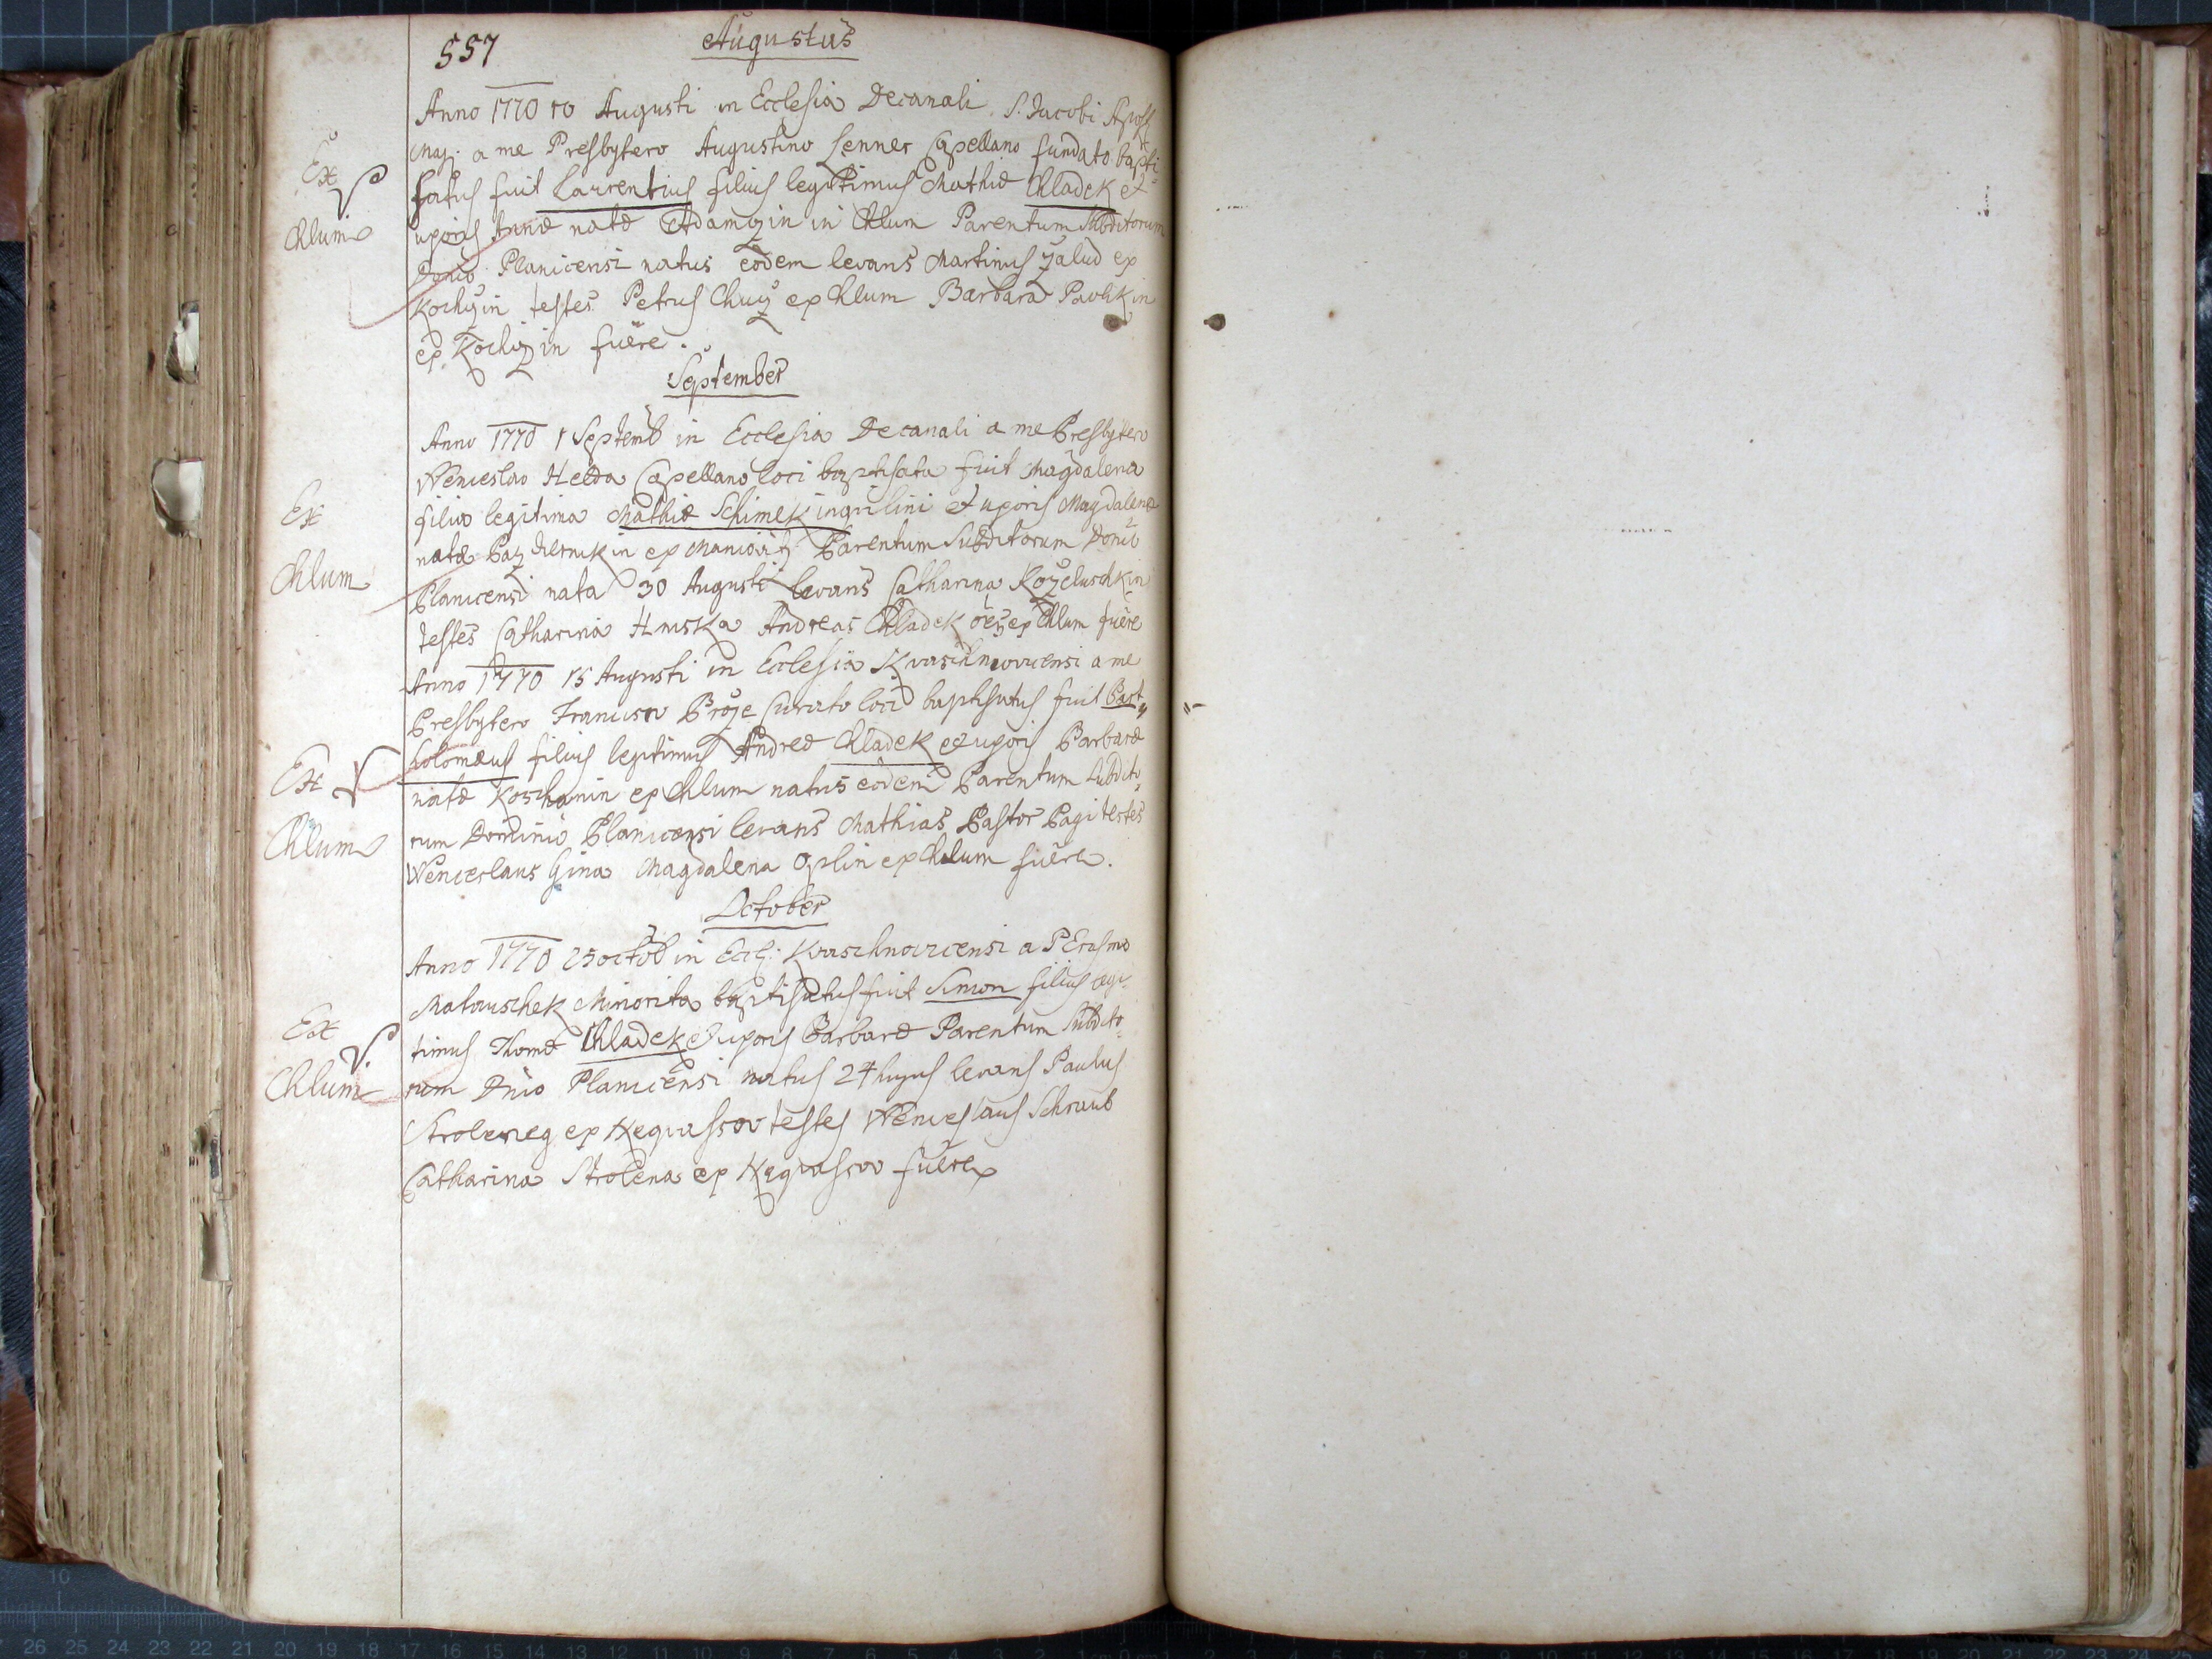 557
Augustus
Anno 1770 10 Augusti in Ecclesia Decanali S. Jacobi Apost
Maj: a me Presbytero Augustino Lenner Capellano fundato bapti-
Ex
satus fuit Laurentius filius legitimus Mathiæ Chladek et
Chlum
uxoris Annæ natæ Adamzin in Chlum Parentum Subditorum
Domio Planicensi natus eodem levans Martinus Zalud ex
Kochzin testes Petrus Chuz ex Chlum Barbara Pavlikin
ex Kochzin fuere.
September
Anno 1770 1 Septemb in Ecclesia Decanali a me Presbytero
Wenceslao Helda Capellano loci baptisata fuit Magdalena
Ex
filia legitima Mathiæ Schimek inquilini et uxoris Magdalenæ
natæ ex Parentum Subditorum Domio
Chlum
Planicensi nata 30 Augusti levans Catharina Kozeluschkin
testes Catharina Hruska Andreas Chladek oēs ex Chlum fuere
Anno 1770 15 Augusti in Ecclesia Kvaschnovicensi a me
Presbytero Francisco Curato loci baptisatus fuit Bart„
Ex
holomæus filius legitimus Andreæ Chladek et uxoris Barbaræ
natæ ex Chlum natus eodem Parentum Subdito„
Chlum
rum Dominio Planicensi levans Mathias Pastor Pagi testes
Wenceslaus Gina Magdalena Oplin ex Chlum fuere.
October
Anno 1770 25 octob in Eccl: Kvaschnovicensi a P Erasmo
Matauschek Minorita baptisatus fuit Simon filius legi-
Ex
timus Thomæ Chladek et uxoris Barbaræ Parentum Subdito-
Chlum
rum Dnio Planicensi natus 24 hujus levans Paulus
ex testes Wenceslaus Schraub
Catharina Strolena ex fuere